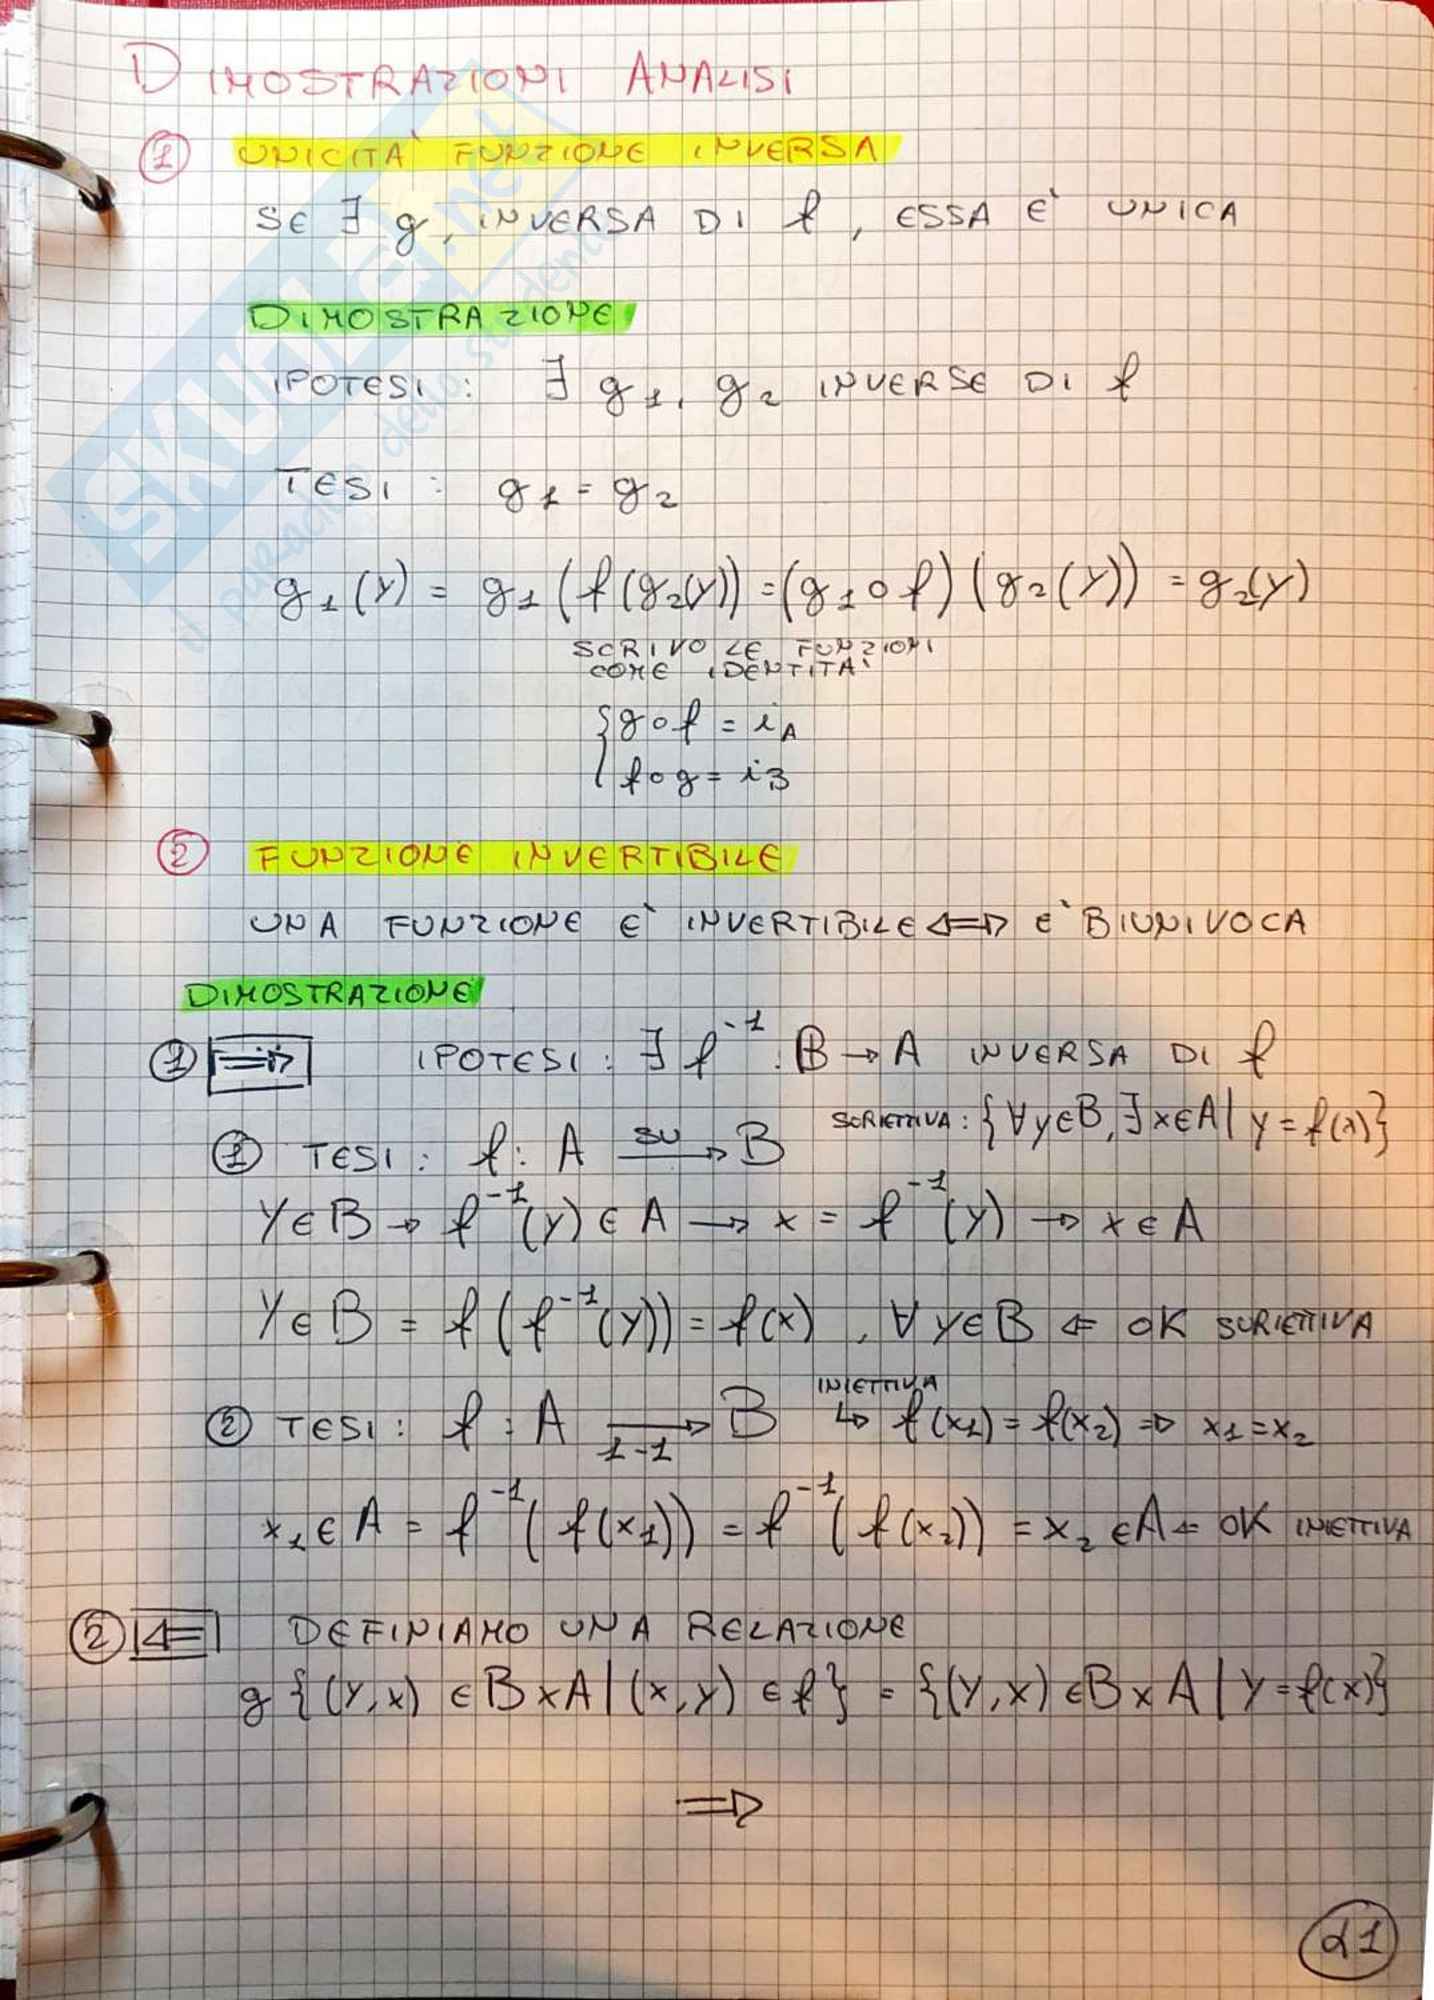 DIMOSTRAZIONI ANALISI
① UNICITÀ FUNZIONE INVERSA
SE ∃ g, INVERSA DI f, ESSA E' UNICA
DIMOSTRAZIONE
IPOTESI: ∃ g₁, g₂ INVERSE DI f
TESI: g₁ = g₂
g₁(y) = g₁(f(g₂(y)) = (g₁∘f)(g₂(y)) = g₂(y)
SCRIVO LE FUNZIONI
COME IDENTITA'
{ g∘f = i_A
f∘g = i_B
② FUNZIONE INVERTIBILE
UNA FUNZIONE E' INVERTIBILE ⇔ E' BIUNIVOCA
DIMOSTRAZIONE
① ⇒ IPOTESI: ∃ f⁻¹: B → A INVERSA DI f
① TESI: f: A —SU→ B SURIETTIVA: {∀y∈B, ∃x∈A | y = f(x)}
y∈B → f⁻¹(y) ∈ A → x = f⁻¹(y) → x∈A
y∈B = f(f⁻¹(y)) = f(x), ∀y∈B ⇐ OK SURIETTIVA
② TESI: f: A —1-1→ B INIETTIVA ↳ f(x₁) = f(x₂) ⇒ x₁ = x₂
x₁∈A = f⁻¹(f(x₁)) = f⁻¹(f(x₂)) = x₂∈A ⇐ OK INIETTIVA
② ⇐ DEFINIAMO UNA RELAZIONE
g {(y,x) ∈ B×A | (x,y) ∈ f} = {(y,x) ∈ B×A | y = f(x)}
⇒
d1
SKUOLA.net
il paradiso dello studente